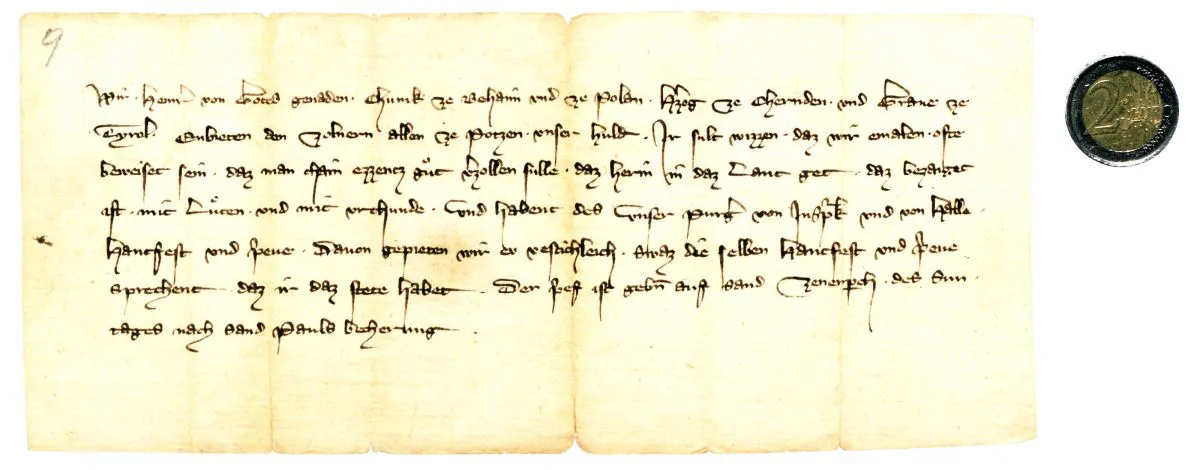 9
Wir · Heinr̄ von Gotes genaden · Chunik ze Behaim vnd ze Polan · Hr̄zog ze Chernden · vnd Graue ze
Tyrol · Enbieten den Zolnern allen ze Potzen · vnser huld · Ir sult wizzen · daz wir emalen · ofte
beweiset sein · daz man chain ezzentz gůt v̄zollen sulle · daz herin in daz Lant get · daz bezaiget
ist · mit Luͤten · vnd mit vrchunde · Vnd habent des Vnser purḡ von Insp̄k vnd von Halle ·
hantfest vnd prieue · Dauon gepieten wir ev vestichleich · swaz die selben hantfest vnd prieue
sprechent · daz ir daz stete habet · Der prief ist gebn̄ auf sand Zenenp̄ch · des Sun
tages nach sand Pauls becherung ·
2